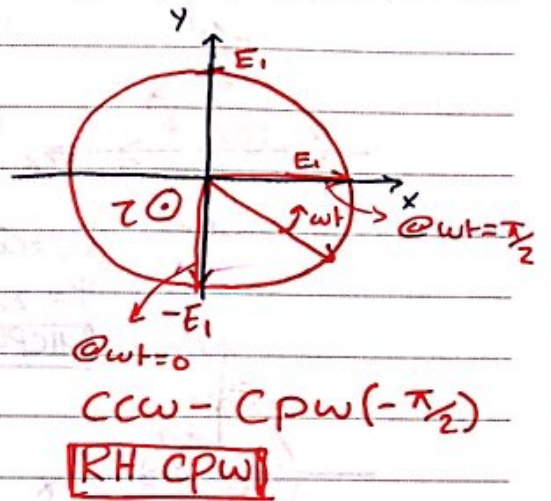 Y
E₁
E₁
X
ωt
@ωt=π/2
z
-E₁
@ωt=0
CCW - CPW(-π/2)
RH CPW